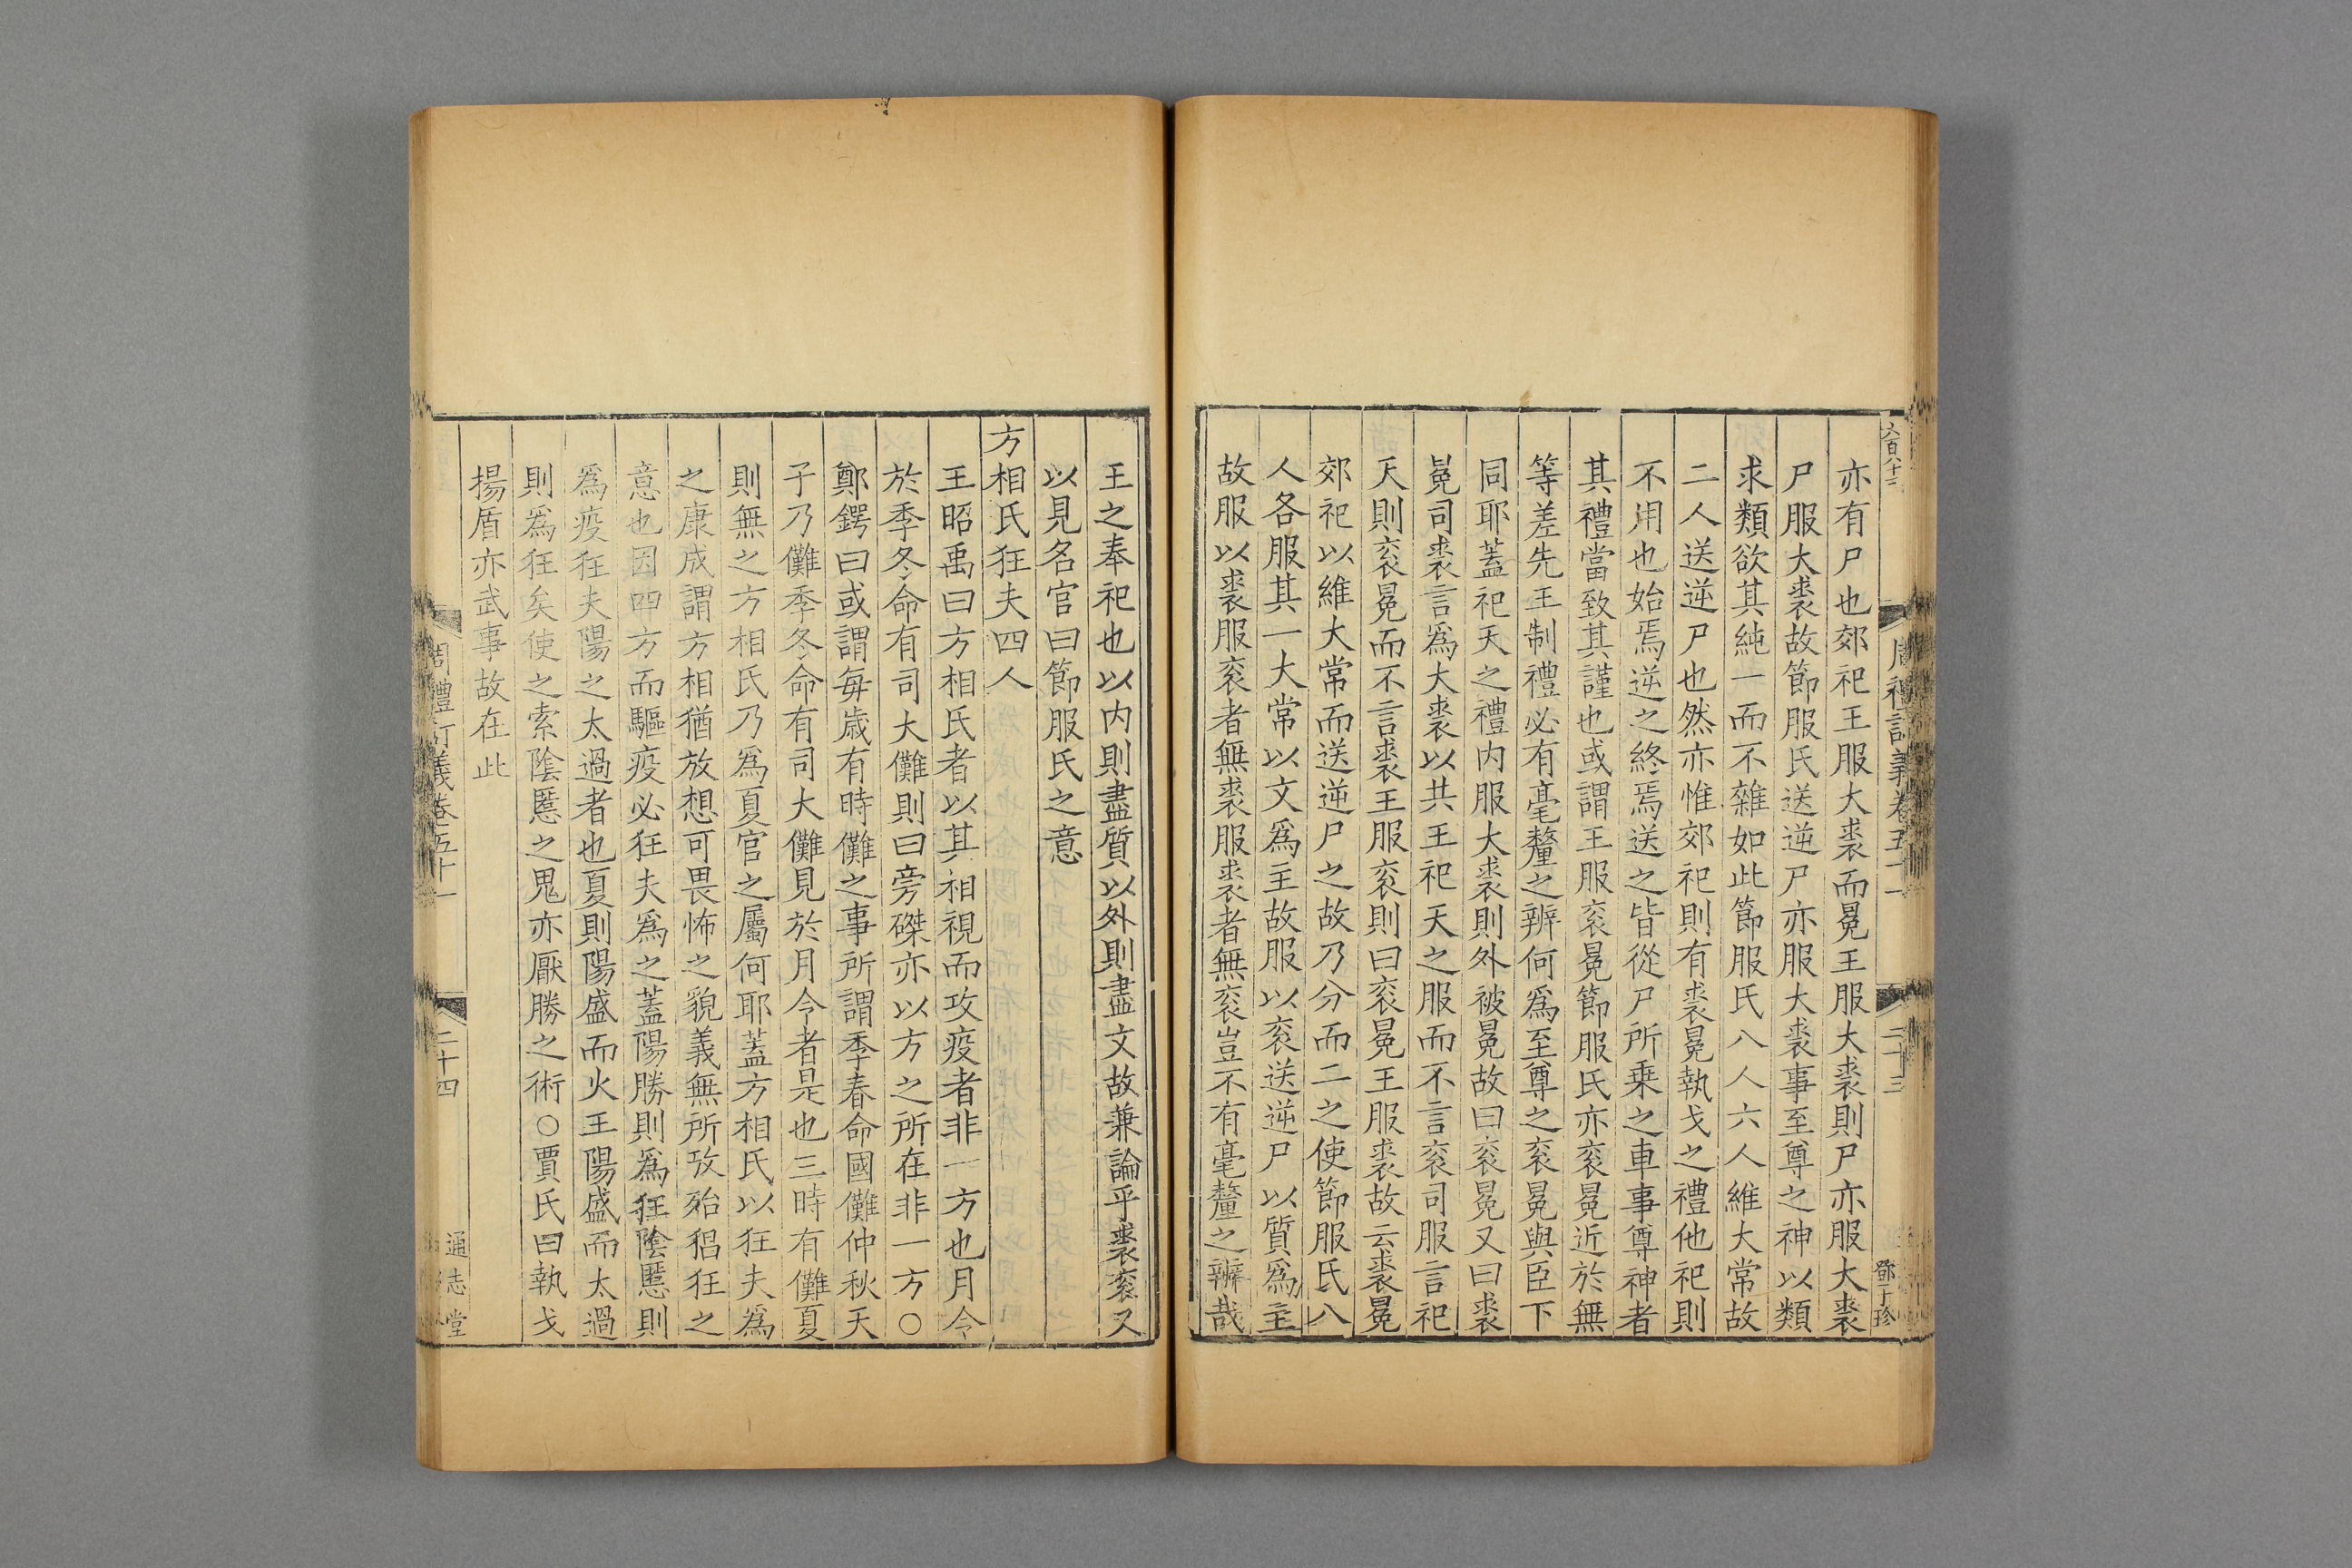 六百八十三
周禮訂義卷五十一
二十三
鄧子珍
亦有尸也郊祀王服大裘而冕王服大裘則尸亦服大裘
尸服大裘故節服氏送逆尸亦服大裘事至尊之神以類
求類欲其純一而不雜如此節服氏八人六人維大常故
二人送逆尸也然亦惟郊祀則有裘冕執戈之禮他祀則
不用也始焉逆之終焉送之皆從尸所乗之車事尊神者
其禮當致其謹也或謂王服衮冕節服氏亦衮冕近於無
等差先王制禮必有毫釐之辨何爲至尊之衮冕與臣下
同耶蓋祀天之禮内服大裘則外被冕故曰衮冕又曰裘
冕司裘言爲大裘以共王祀天之服而不言衮司服言祀
天則衮冕而不言裘王服衮則曰衮冕王服裘故云裘冕
郊祀以維大常而送逆尸之故乃分而二之使節服氏八
人各服其一大常以文爲主故服以衮送逆尸以質爲主
故服以裘服衮者無裘服裘者無衮豈不有毫釐之辨哉
王之奉祀也以内則盡質以外則盡文故兼論乎裘衮又
以見名官曰節服氏之意
方相氏狂夫四人
王昭禹曰方相氏者以其相視而攻疫者非一方也月令
於季冬命有司大儺則曰旁磔亦以方之所在非一方○
鄭鍔曰或謂每歲有時儺之事所謂季春命國儺仲秋天
子乃儺季冬命有司大儺見於月令者是也三時有儺夏
則無之方相氏乃爲夏官之屬何耶蓋方相氏以狂夫爲
之康成謂方相猶放想可畏怖之貌義無所攷殆猖狂之
意也因四方而驅疫必狂夫爲之蓋陽勝則爲狂陰慝則
爲疫狂夫陽之太過者也夏則陽盛而火王陽盛而太過
則爲狂矣使之索陰慝之鬼亦厭勝之術○賈氏曰執戈
揚盾亦武事故在此
周禮訂義卷五十一
二十四
通志堂